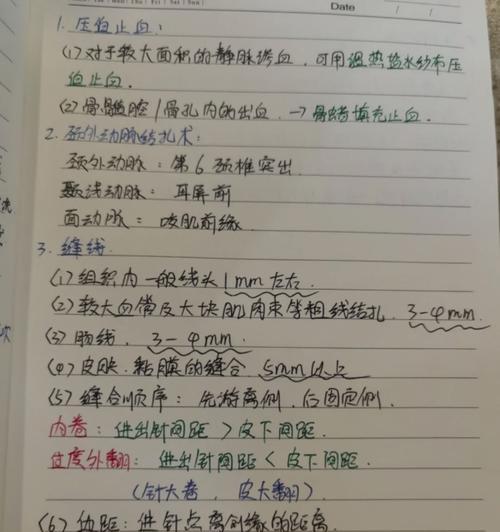 Date
1. 压迫止血:
(1) 对于较大面积的静脉渗血，可用温热盐水纱布压
迫止血.
(2) 骨髓腔/骨孔内的出血. → 骨蜡填充止血.
2. 颈外动脉结扎术:
颈外动脉: 第6颈椎突出
颞浅动脉: 耳屏前
面动脉: 咬肌前缘
3. 缝线.
(1) 组织内一般线头1mm左右.
(2) 较大血管及大块肌肉束等粗线结扎. 3-4mm.
(3) 肠线. 3-4mm.
(4) 皮肤、黏膜的缝合 5mm以上
(5) 缝合顺序: 先游离侧. 后固定侧.
内卷: 进出针间距 > 皮下间距.
过度外翻: 进出针间距 < 皮下间距.
(针大卷，皮大翻).
(6) 边距: 进针点离创缘的距离